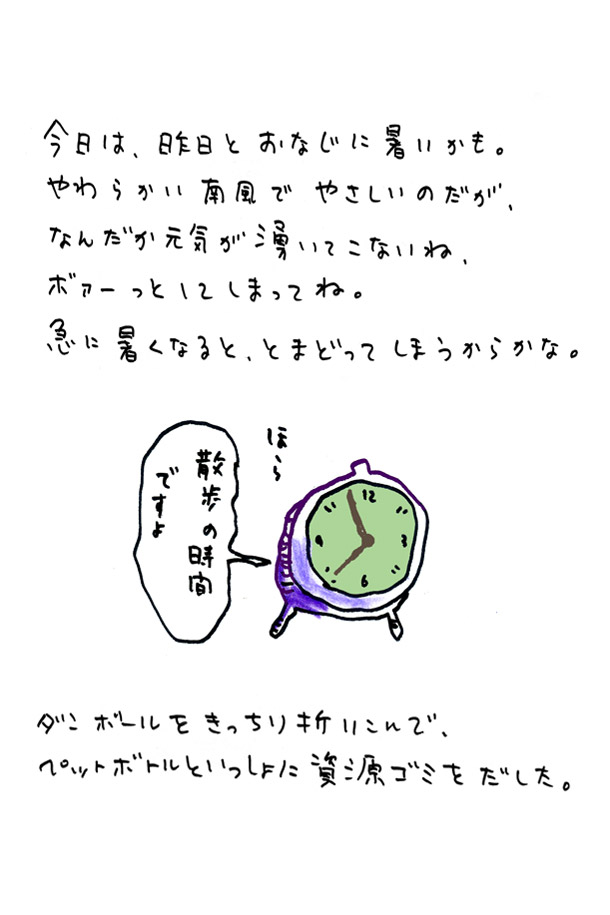 今日は、昨日とおなじに暑いかも。
やわらかい南風でやさしいのだが、
なんだか元気が湧いてこないね、
ボァーっとしてしまってね。
急に暑くなると、とまどってしまうからかな。
ほら
散歩の時間
ですよ
12
3
6
9
ダンボールをきっちり折りこんで、
ペットボトルといっしょに資源ゴミをだした。